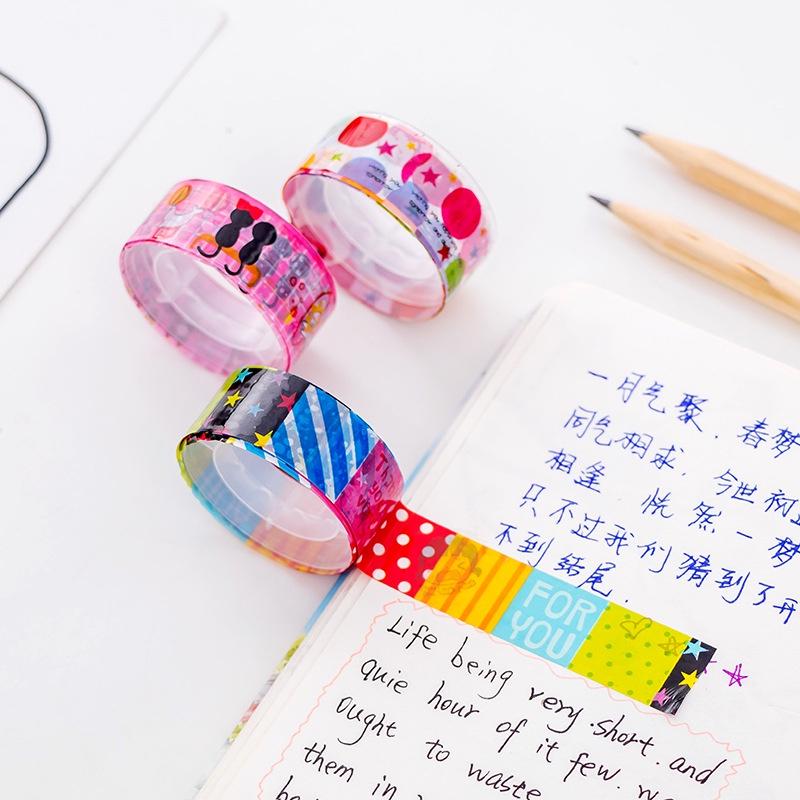 一月气聚. 春梦
同气相求. 今世初
相逢 恍然一梦
只不过我们猜到了开
不到结尾.
FOR
YOU
Life being very short. and
quie hour of it few. we
ought to waste
them in